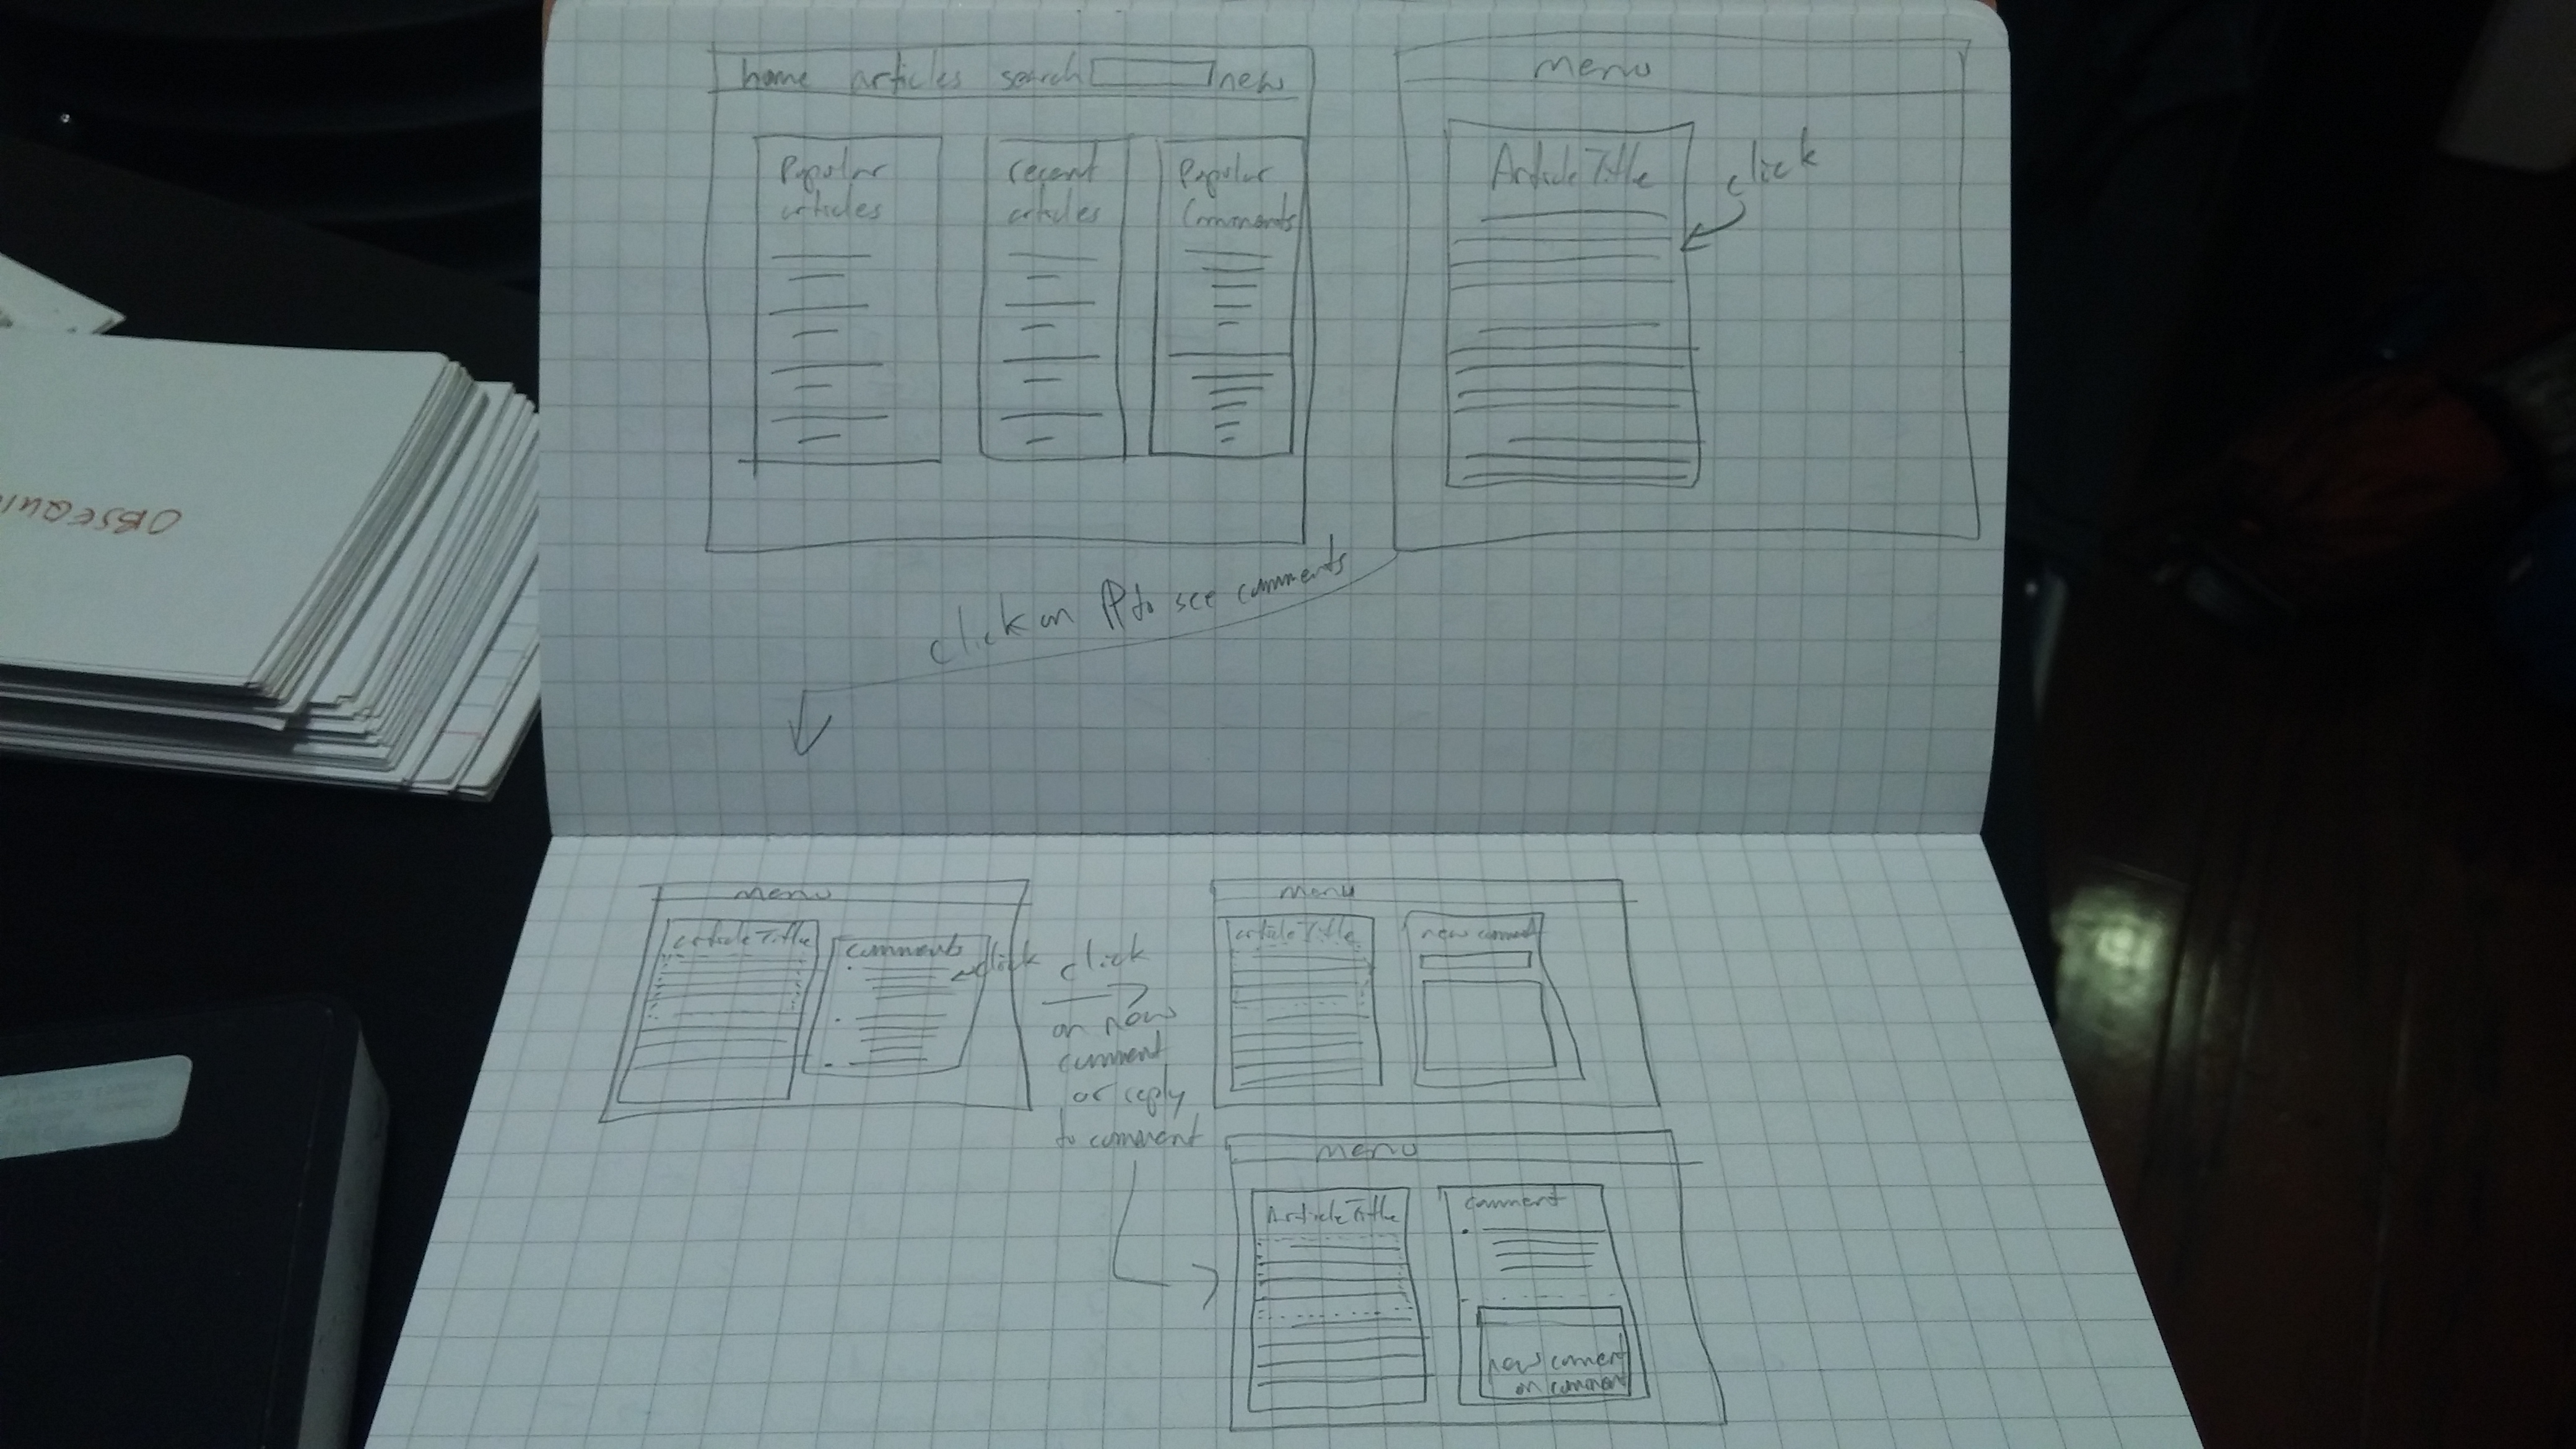 home articles search new
Popular
articles
recent
articles
Popular
Comments
menu
Article Title
click
click on ¶ to see comments
menu
article Title
comments
click
click
on new
comment
or reply
to comment
menu
article Title
new comment
menu
Article Title
comment
new comment
on comment
OBSEQUI